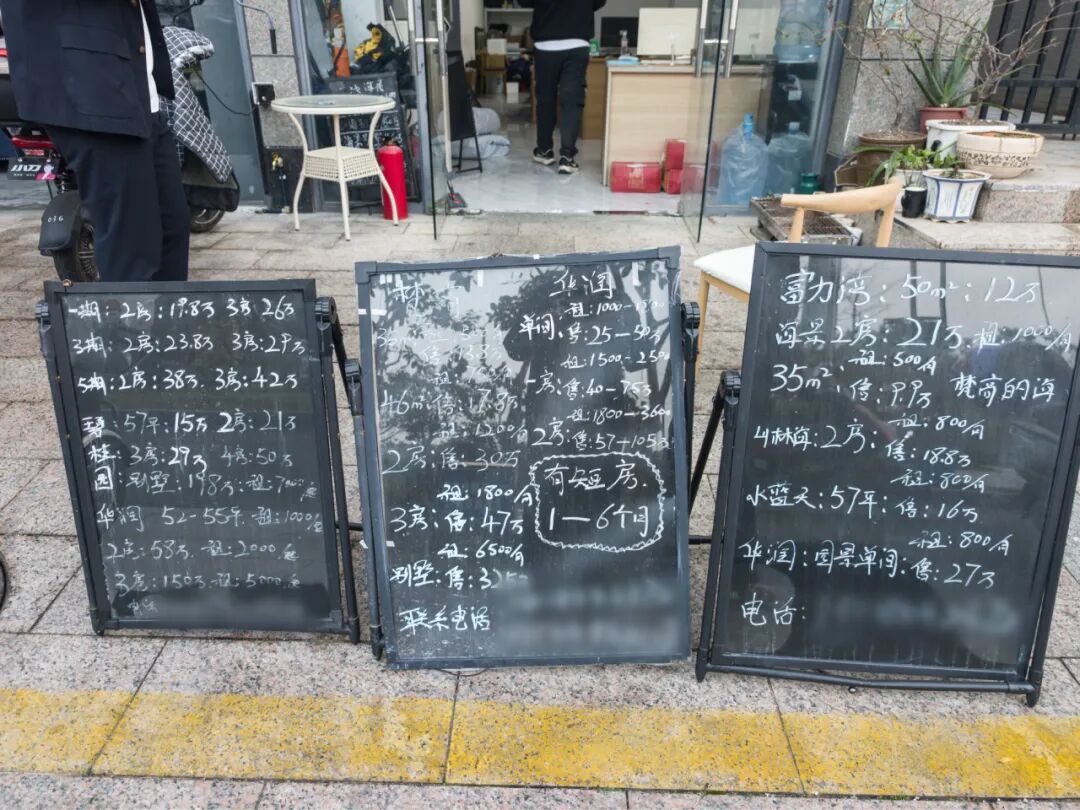 一期:2房:19.8万 3房:26万
3期:2房:23.8万 3房:29万
5期:2房:38万 3房:42万
57平:15万 2房:21万
桂:3房:29万 4房:50万
园:别墅:198万:租:7000起
华润 52-55平 租:1000起
2房:58万 租:2000起
3房:150万 租:5000起
电话
华润
租:1000-1800
单间:售:25-50万
租:1500-2500
一房:售:40-75万
租:1800-3600
2房:售:57-105万
有短房
1-6个月
46m²:售:17.8万
租:1200/月
2房:售:30万
租:1800/月
3房:售:47万
租:6500/月
别墅:售:
联系电话
富力湾:50m²:12万
海景2房:21万 租:1000/月
租:500/月
35m²:售:9.9万 梵高的海
租:800/月
山林海:2房:售:18.8万
租:800/月
水蓝天:57平:售:16万
租:800/月
华润:园景单间:售:27万
电话: